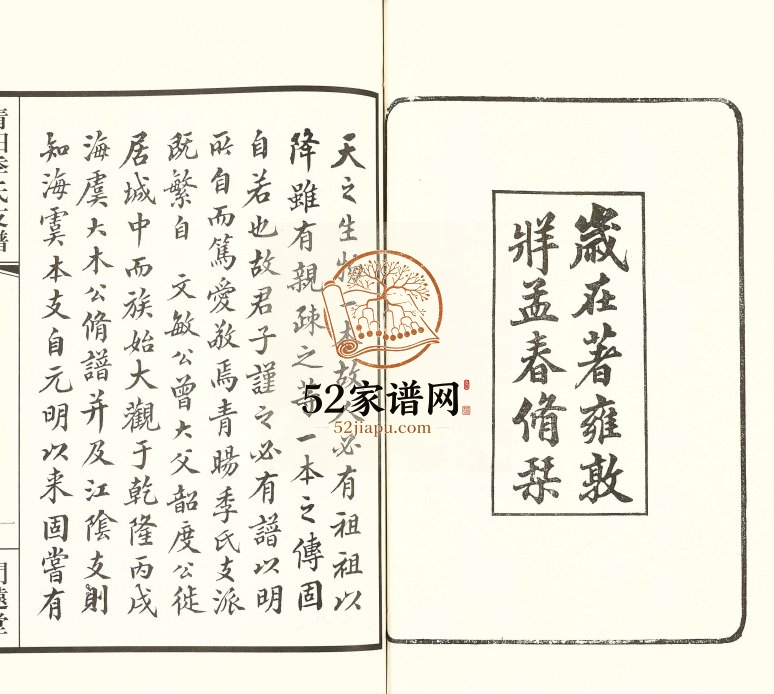 歲在著雍敦
牂孟春脩栞
天之生物一本故人必有祖祖以
降雖有親疎之等一本之傳固
自若也故君子謹之必有譜以明
所自而篤愛敬焉青暘季氏支派
既繁自 文敏公曾大父韶度公徙
居城中而族始大觀于乾隆丙戌
海虞大木公脩譜并及江陰支則
知海虞本支自元明以来固嘗有
季氏支譜
一
52家谱网
52jiapu.com